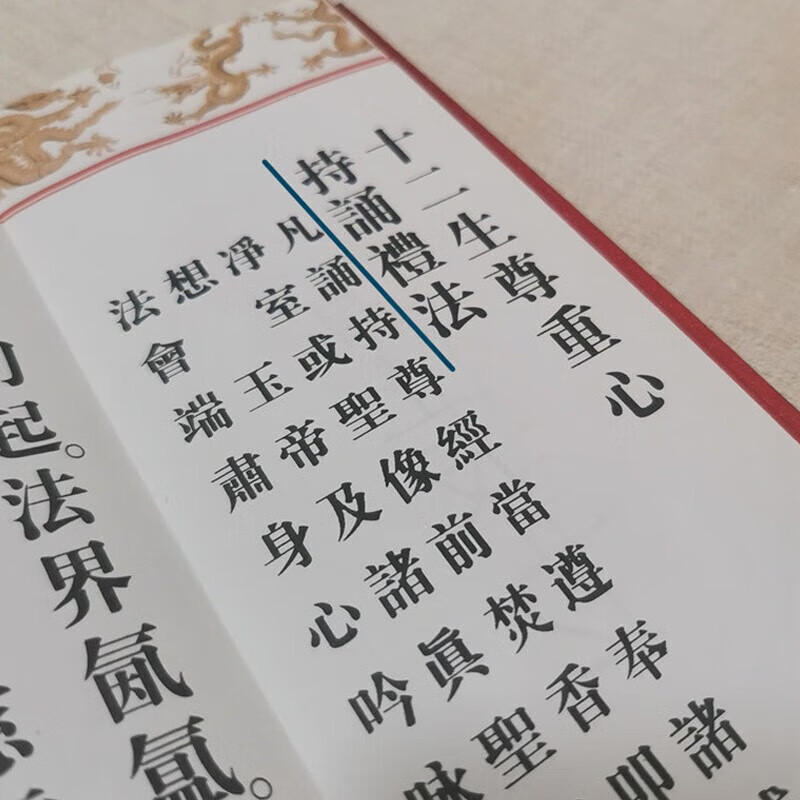 十二生尊重心
持誦禮法
凡誦持尊經當遵奉諸
淨室或聖像前焚香叩
想玉帝及諸眞聖
法會端肅身心吟
起。法界氤氳。